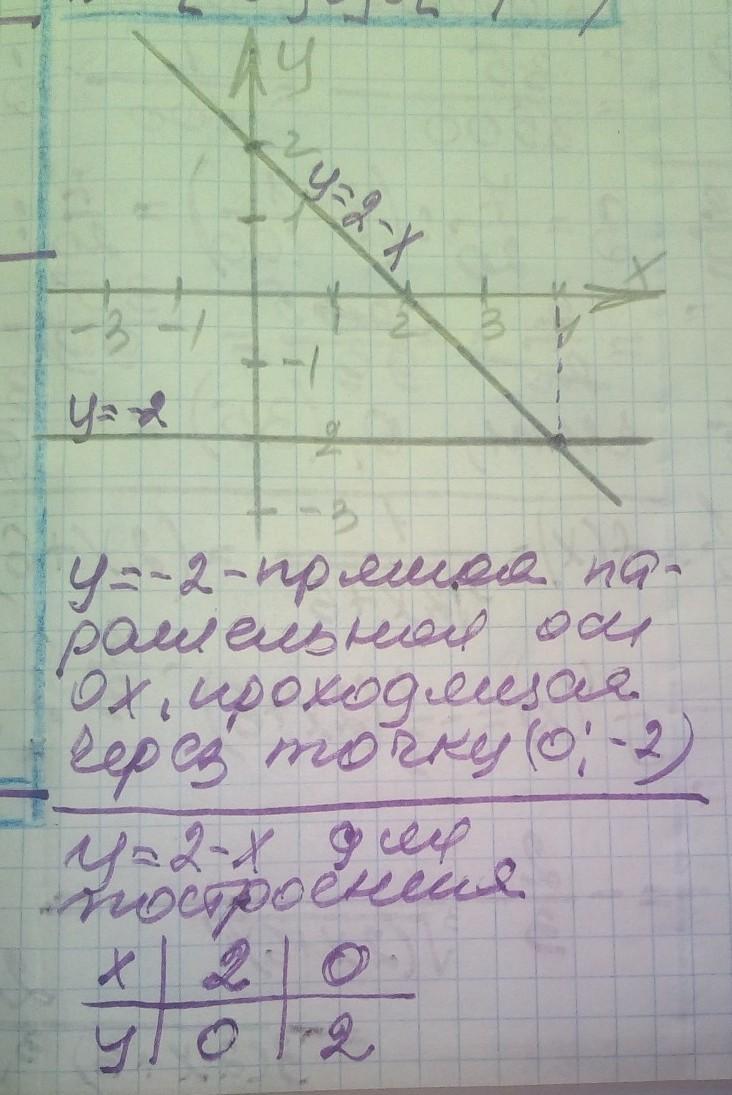 y
2
y=2-x
1
x
-3 -1 1 2 3
-1
y=-2
2
-3
y=-2-прямая па-
раллельная оси
ох, проходящая
через точку (0; -2)
y=2-x для
построения
x 2 0
y 0 -2